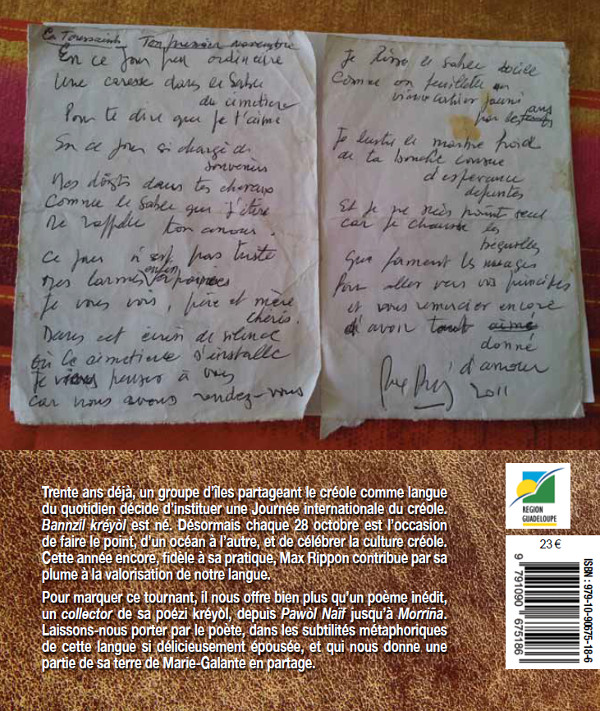 La Toussaint Ton premier novembre
En ce jour peu ordinaire
Une caresse dans le sable
du cimetière
Pour te dire que je t'aime
En ce jour si chargé de
souvenirs
Mes doigts dans tes cheveux
Comme le sable que j'étire
Me rappelle ton amour.
Ce jour n'est pas triste
Mes larmes enfin
Je vous vois, père et mère
chéris.
Dans cet écrin de silence
où le cimetière s'installe
Je viens penser à vous
car nous avons rendez-vous
Je lisse le sable
Comme on feuillette un
vieux cahier jauni
par les ans
Je lustre le marbre froid
de ta bouche cousue
d'espérance
défuntes
Et je ne suis point seul
car je chausse les
béquilles
Que forment les nuages
Pour aller vers vos
et vous remercier encore
d'avoir tout aimé
donné
d'amour
2011
Trente ans déjà, un groupe d'îles partageant le créole comme langue
du quotidien décide d'instituer une Journée internationale du créole.
Bannzil kréyòl est né. Désormais chaque 28 octobre est l'occasion
de faire le point, d'un océan à l'autre, et de célébrer la culture créole.
Cette année encore, fidèle à sa pratique, Max Rippon contribue par sa
plume à la valorisation de notre langue.
Pour marquer ce tournant, il nous offre bien plus qu'un poème inédit,
un collector de sa poézi kréyòl, depuis Pawòl Naïf jusqu'à Morriña.
Laissons-nous porter par le poète, dans les subtilités métaphoriques
de cette langue si délicieusement épousée, et qui nous donne une
partie de sa terre de Marie-Galante en partage.
REGION
GUADELOUPE
23 €
ISBN : 979-10-90675-18-6
9 791090 675186